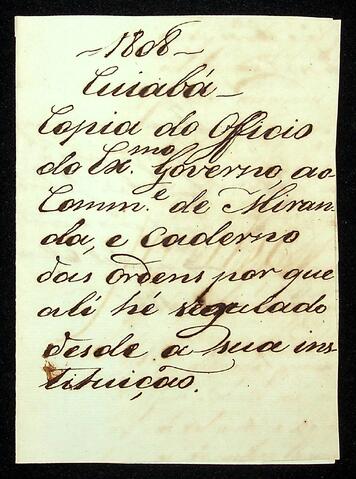 - 1808 -
Cuiabá -
Copia do Officio
do Ex.mo Governo, ao
Comm.e de Miran-
da, e Caderno
das ordens por que
ali hé regulado
desde a sua ins-
tituição.